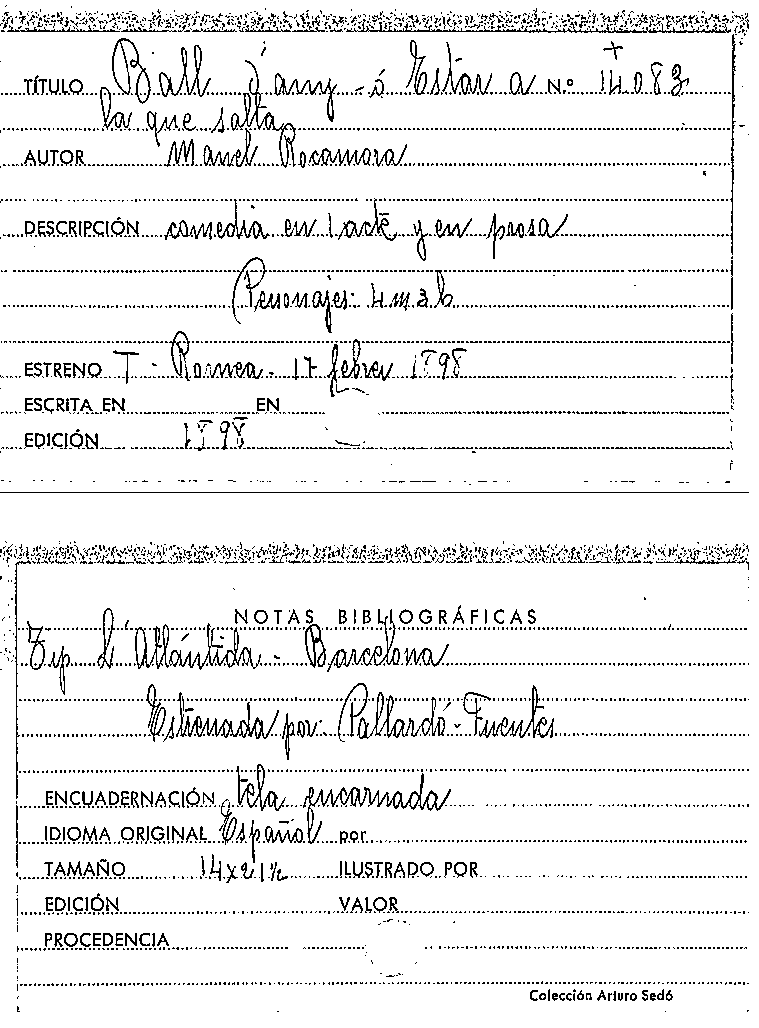 TÍTULO Ball d'any - ó Estar a N.º 14083
la que salta
AUTOR Manel Rocamora
DESCRIPCIÓN comedia en 1 acte y en prosa
Personajes: 4 m 3 h
ESTRENO T - Romea - 17 febrer 1898
ESCRITA EN EN
EDICIÓN 1898
NOTAS BIBLIOGRÁFICAS
Tip L'Atlántida - Barcelona
Estrenada por: Pallardó - Fuentes
ENCUADERNACIÓN tela encarnada
IDIOMA ORIGINAL Español por
TAMAÑO 14 x 21 ½ ILUSTRADO POR
EDICIÓN VALOR
PROCEDENCIA
Colección Arturo Sedó